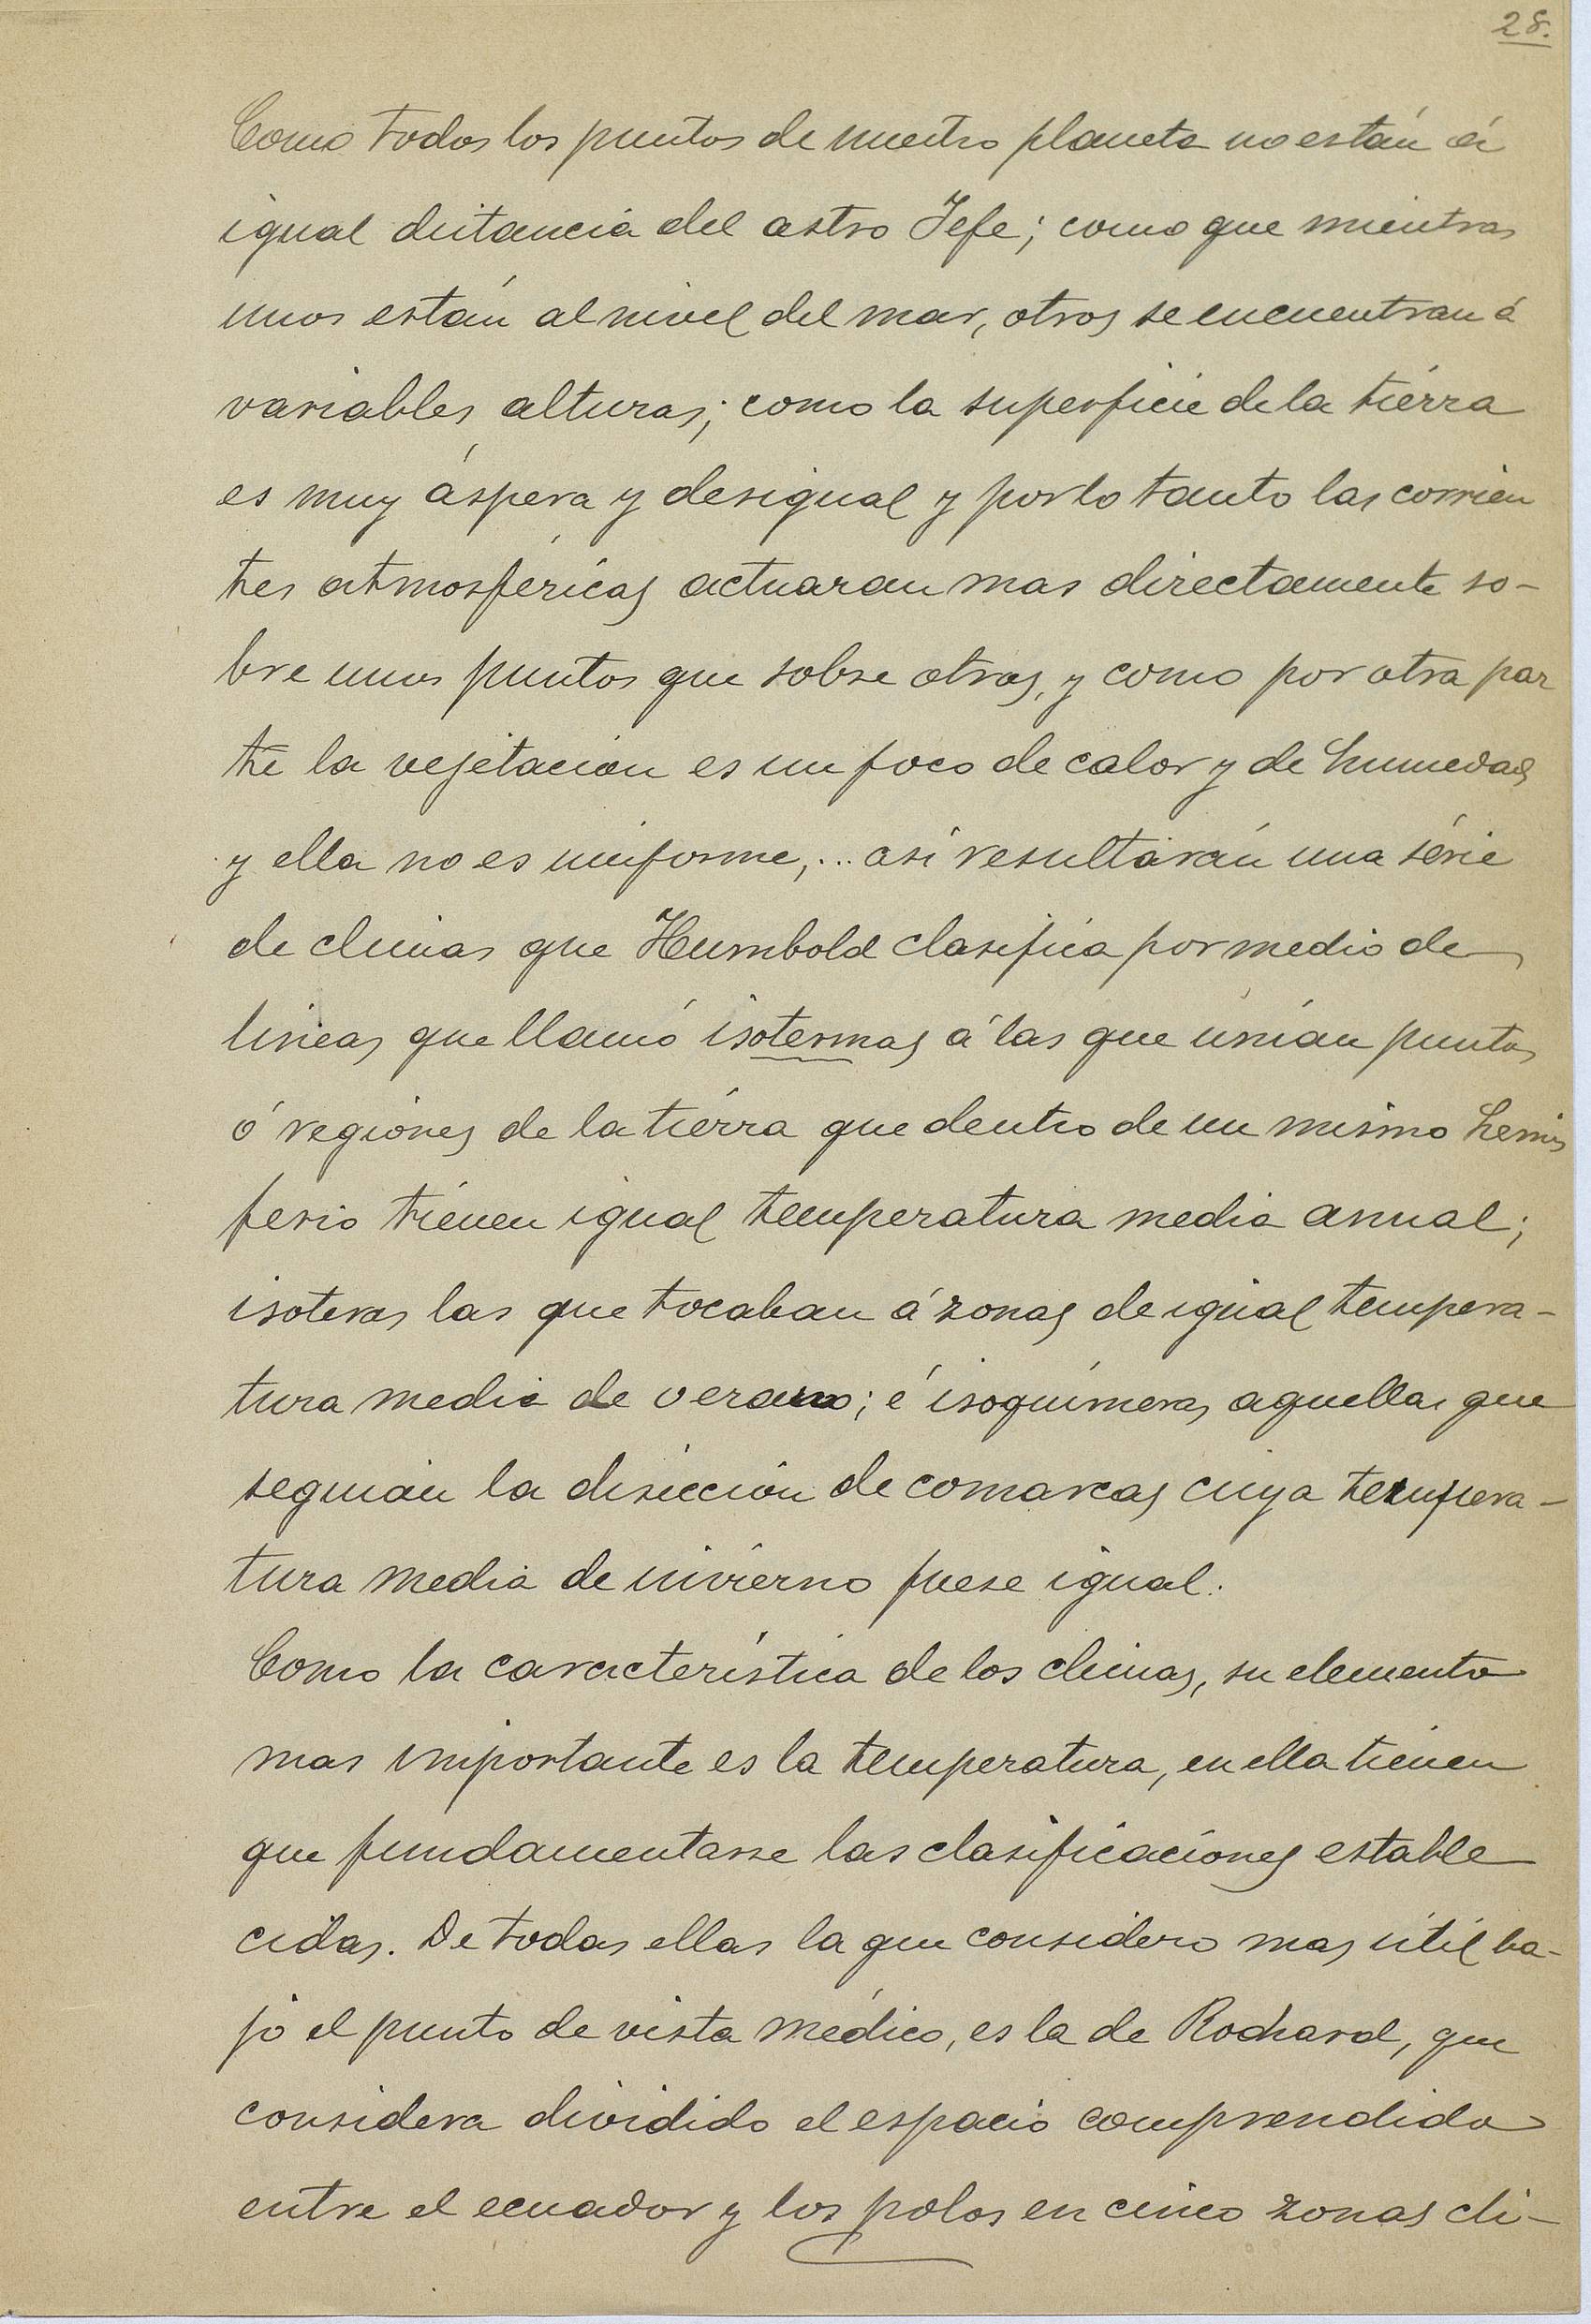 28.
Como todos los puntos de nuestro planeta no están á
igual distancia del astro Jefe; como que mientras
unos están al nivel del mar, otros se encuentran á
variables alturas; como la superficie de la tierra
es muy áspera y desigual y por lo tanto las corrien
tes atmosféricas actuaran mas directamente so-
bre unos puntos que sobre otros, y como por otra par
te la vejetacion es un foco de calor y de humedad
y ella no es uniforme,... así resultarán una série
de climas que Humbold clasifica por medio de
lineas que llamó isotermas á las que unían puntos
ó regiones de la tierra que dentro de un mismo hemis
ferio tienen igual temperatura media anual;
isoteras las que tocaban á zonas de igual tempera-
tura media de verano; é isoquímeras aquellas que
seguían la dirección de comarcas cuya tempera-
tura media de invierno fuese igual.
Como la característica de los climas, su elemento
mas importante es la temperatura, en ella tienen
que fundamentarse las clasificaciones estable
cidas. De todas ellas la que considero mas útil ba-
jo el punto de vista médico, es la de Rochard, que
considera dividido el espacio comprendido
entre el ecuador y los polos en cinco zonas cli-